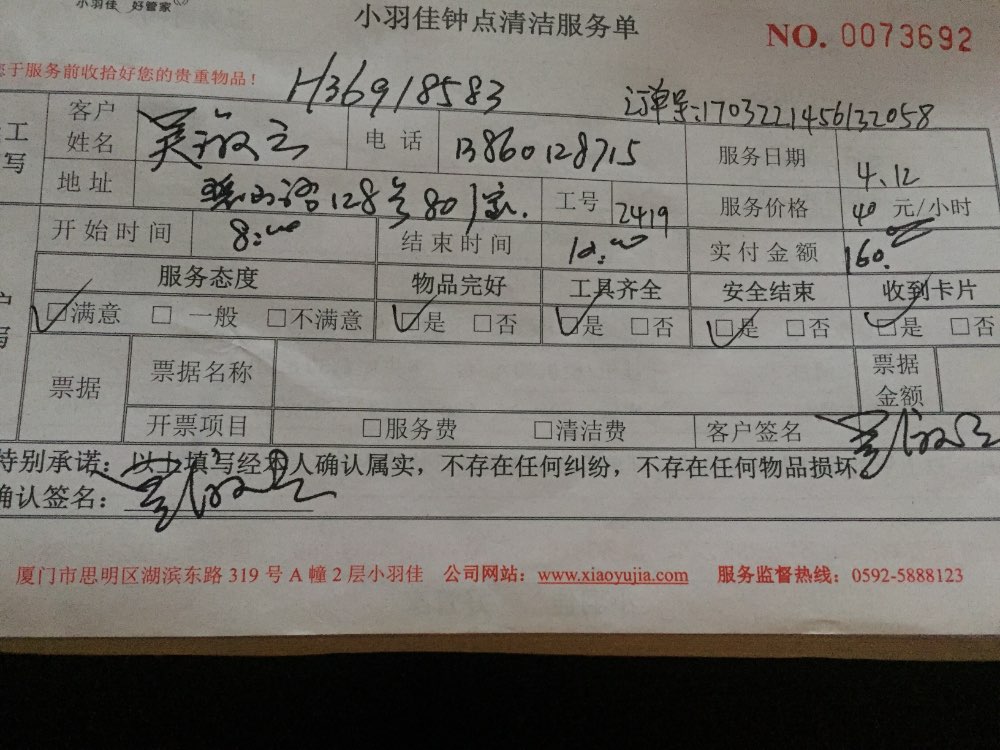 小羽佳 好管家
小羽佳钟点清洁服务单
NO. 0073692
于服务前收拾好您的贵重物品！
H36918583
订单号:1703221456132058
工 写
客户姓名 吴淑云 电话 13860128715 服务日期 4.12
地址 路128号801室. 工号 2419 服务价格 40 元/小时
开始时间 8:00 结束时间 12:00 实付金额 160.
户 写
服务态度 物品完好 工具齐全 安全结束 收到卡片
☑满意 □ 一般 □不满意 ☑是 □否 ☑是 □否 ☑是 □否 ☑是 □否
票据 票据名称 票据金额
开票项目 □服务费 □清洁费 客户签名
特别承诺：以上填写经本人确认属实，不存在任何纠纷，不存在任何物品损坏
确认签名：
厦门市思明区湖滨东路 319 号 A 幢 2 层小羽佳 公司网站：www.xiaoyujia.com 服务监督热线：0592-5888123